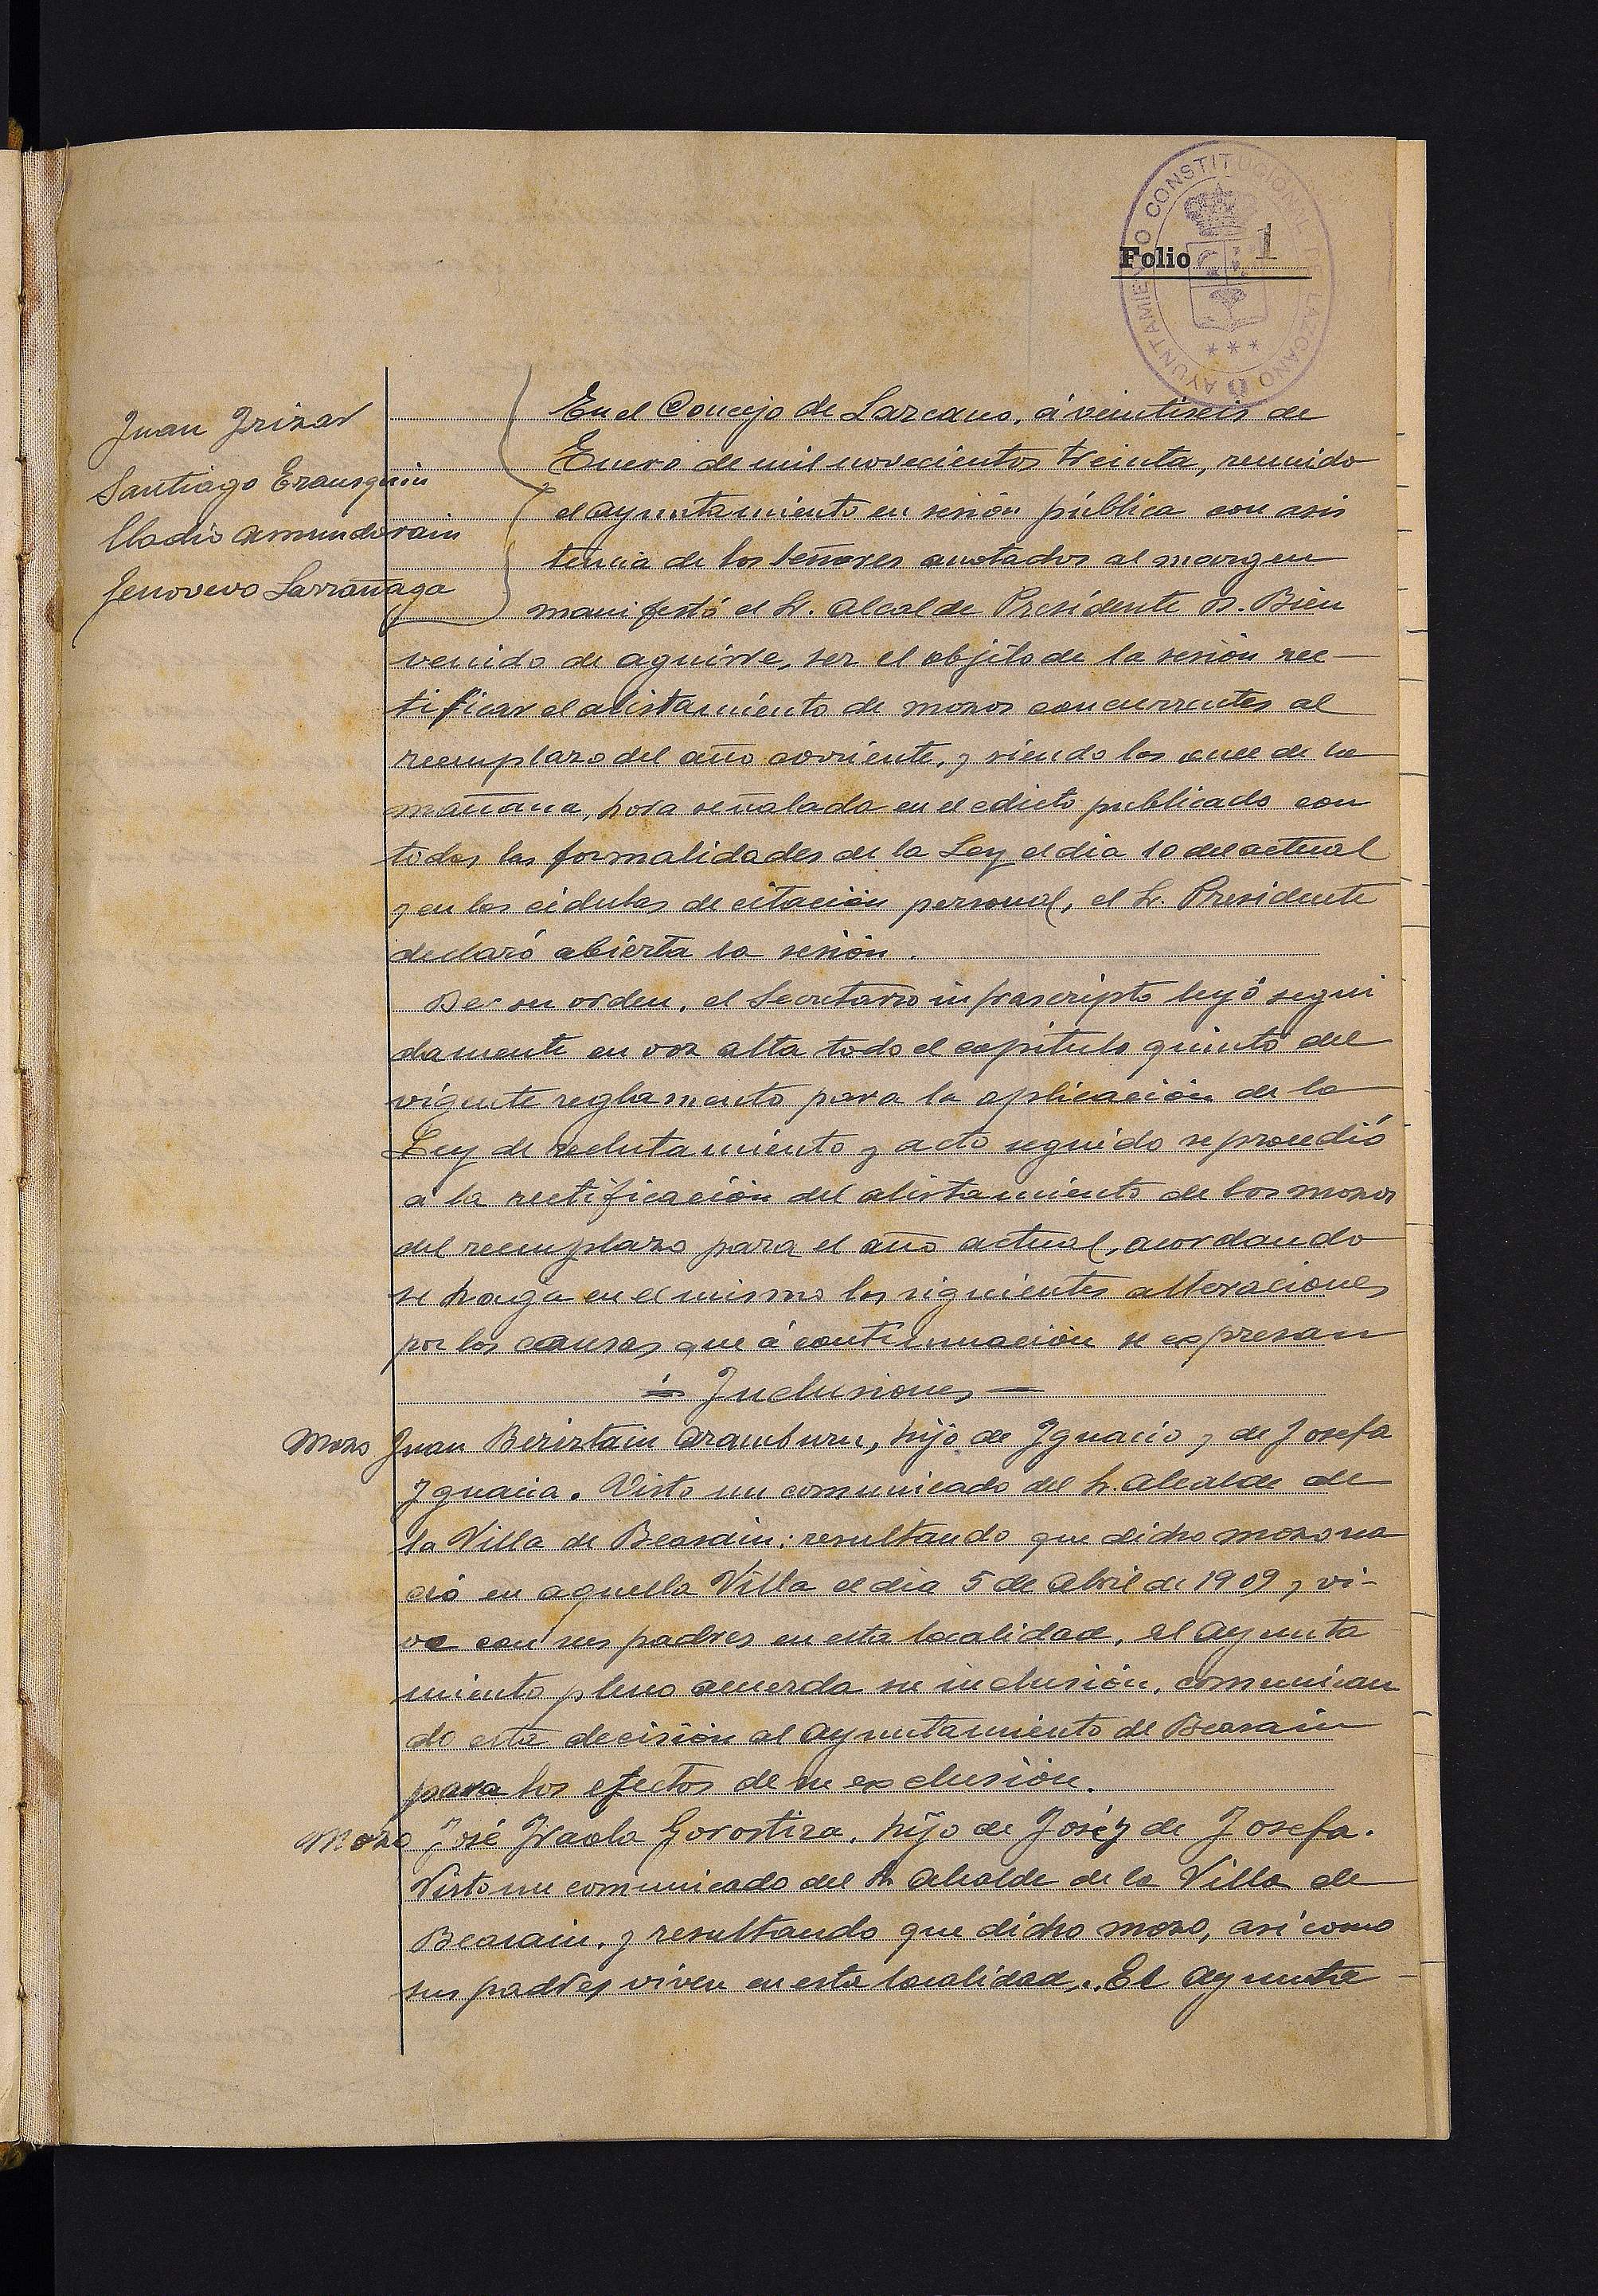 AYUNTAMIENTO CONSTITUCIONAL DE LAZCANO
Folio 1
Juan Irizar
Santiago Erausquin
Eladio Amundarain
Genovevo Larrañaga
En el Concejo de Lazcano, á veintiseis de
Enero de mil novecientos treinta, reunido
el Ayuntamiento en sesión pública con asis
tencia de los señores anotados al margen
manifestó el Sr. Alcalde Presidente D. Bien
venido de Aguirre, ser el objeto de la sesión rec-
tificar el alistamiento de mozos concurrentes al
reemplazo del año corriente, y siendo las once de la
mañana, hora señalada en el edicto publicado con
todas las formalidades de la Ley el dia 10 del actual
y en las cédulas de citación personal, el Sr. Presidente
declaró abierta la sesión.
De su orden, el Secretario infrascripto leyó segui
damente en voz alta todo el capítulo quinto del
vigente reglamento para la aplicación de la
Ley de reclutamiento y acto seguido se procedió
á la rectificación del alistamiento de los mozos
del reemplazo para el año actual, acordando
se haga en el mismo las siguientes alteraciones
por las causas que á continuación se expresan
= Inclusiones =
Mozo Juan Beriztain Aramburu, hijo de Ignacio y de Josefa
Ignacia. Visto un comunicado del Sr. Alcalde de
la Villa de Beasain: resultando que dicho mozo na
ció en aquella Villa el dia 5 de Abril de 1909 y vi-
ve con sus padres en esta localidad, el Ayunta
miento pleno acuerda su inclusión, comunican
do esta decisión al Ayuntamiento de Beasain
para los efectos de su exclusión.
Mozo José Iraola Gorostiza, hijo de José y de Josefa.
Visto un comunicado del Sr. Alcalde de la Villa de
Beasain, y resultando que dicho mozo, así como
sus padres viven en esta localidad, El Ayunta